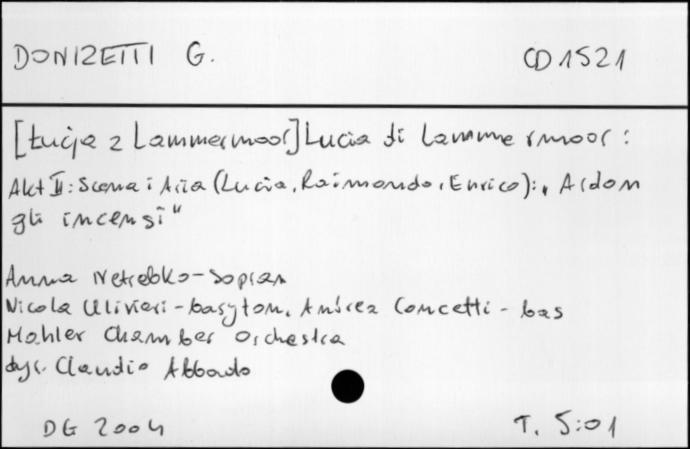 DONIZETTI G. CD 1521
[Łucja z Lammermoor] Lucia di Lammermoor:
Akt II: Scena i Aria (Lucia, Raimondo, Enrico): „Ardon
gli incensi"
Anna Netrebko - sopran
Nicola Ulivieri - baryton, Andrea Concetti - bas
Mahler Chamber Orchestra
dyr. Claudio Abbado
DG 2004 T. 5:01